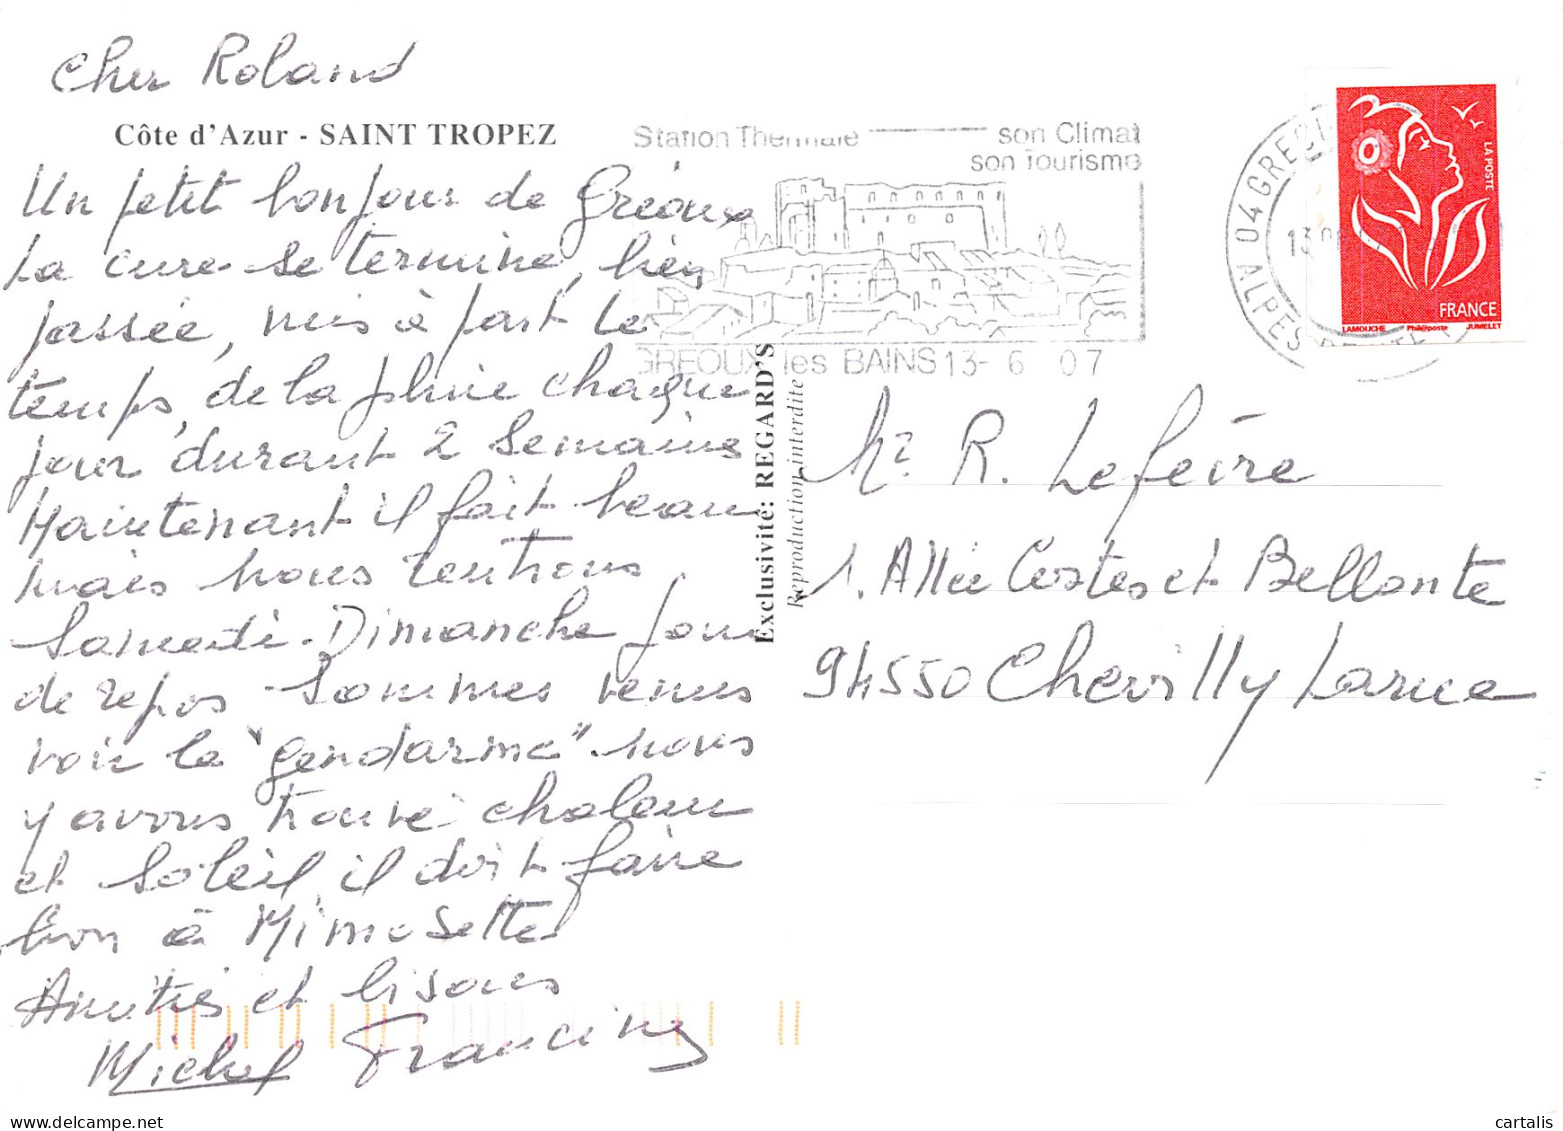 Cher Roland
Côte d'Azur - SAINT TROPEZ
Un petit bonjour de Gréoux
La cure se termine, bien
passée, mis à part le
temps, de la pluie chaque
jour durant 2 semaines
Maintenant il fait beau
mais nous rentrons
Samedi. Dimanche jour
de repos sommes venus
voir le "gendarme" nous
y avons trouvé chaleur
et soleil, il doit faire
bon à Mimosette
Amitiés et bisous
Michel Francine
Station Thermale son Climat
son Tourisme
GREOUX les BAINS 13- 6 07
04 GREOU
13
ALPES
LA POSTE
FRANCE
LAMOUCHE Phil@poste JUMELET
Exclusivité: REGARD'S
Reproduction interdite
Mr R. Lefèvre
1. Allée Costes et Bellonte
94550 Chevilly Larue
delcampe.net
cartalis